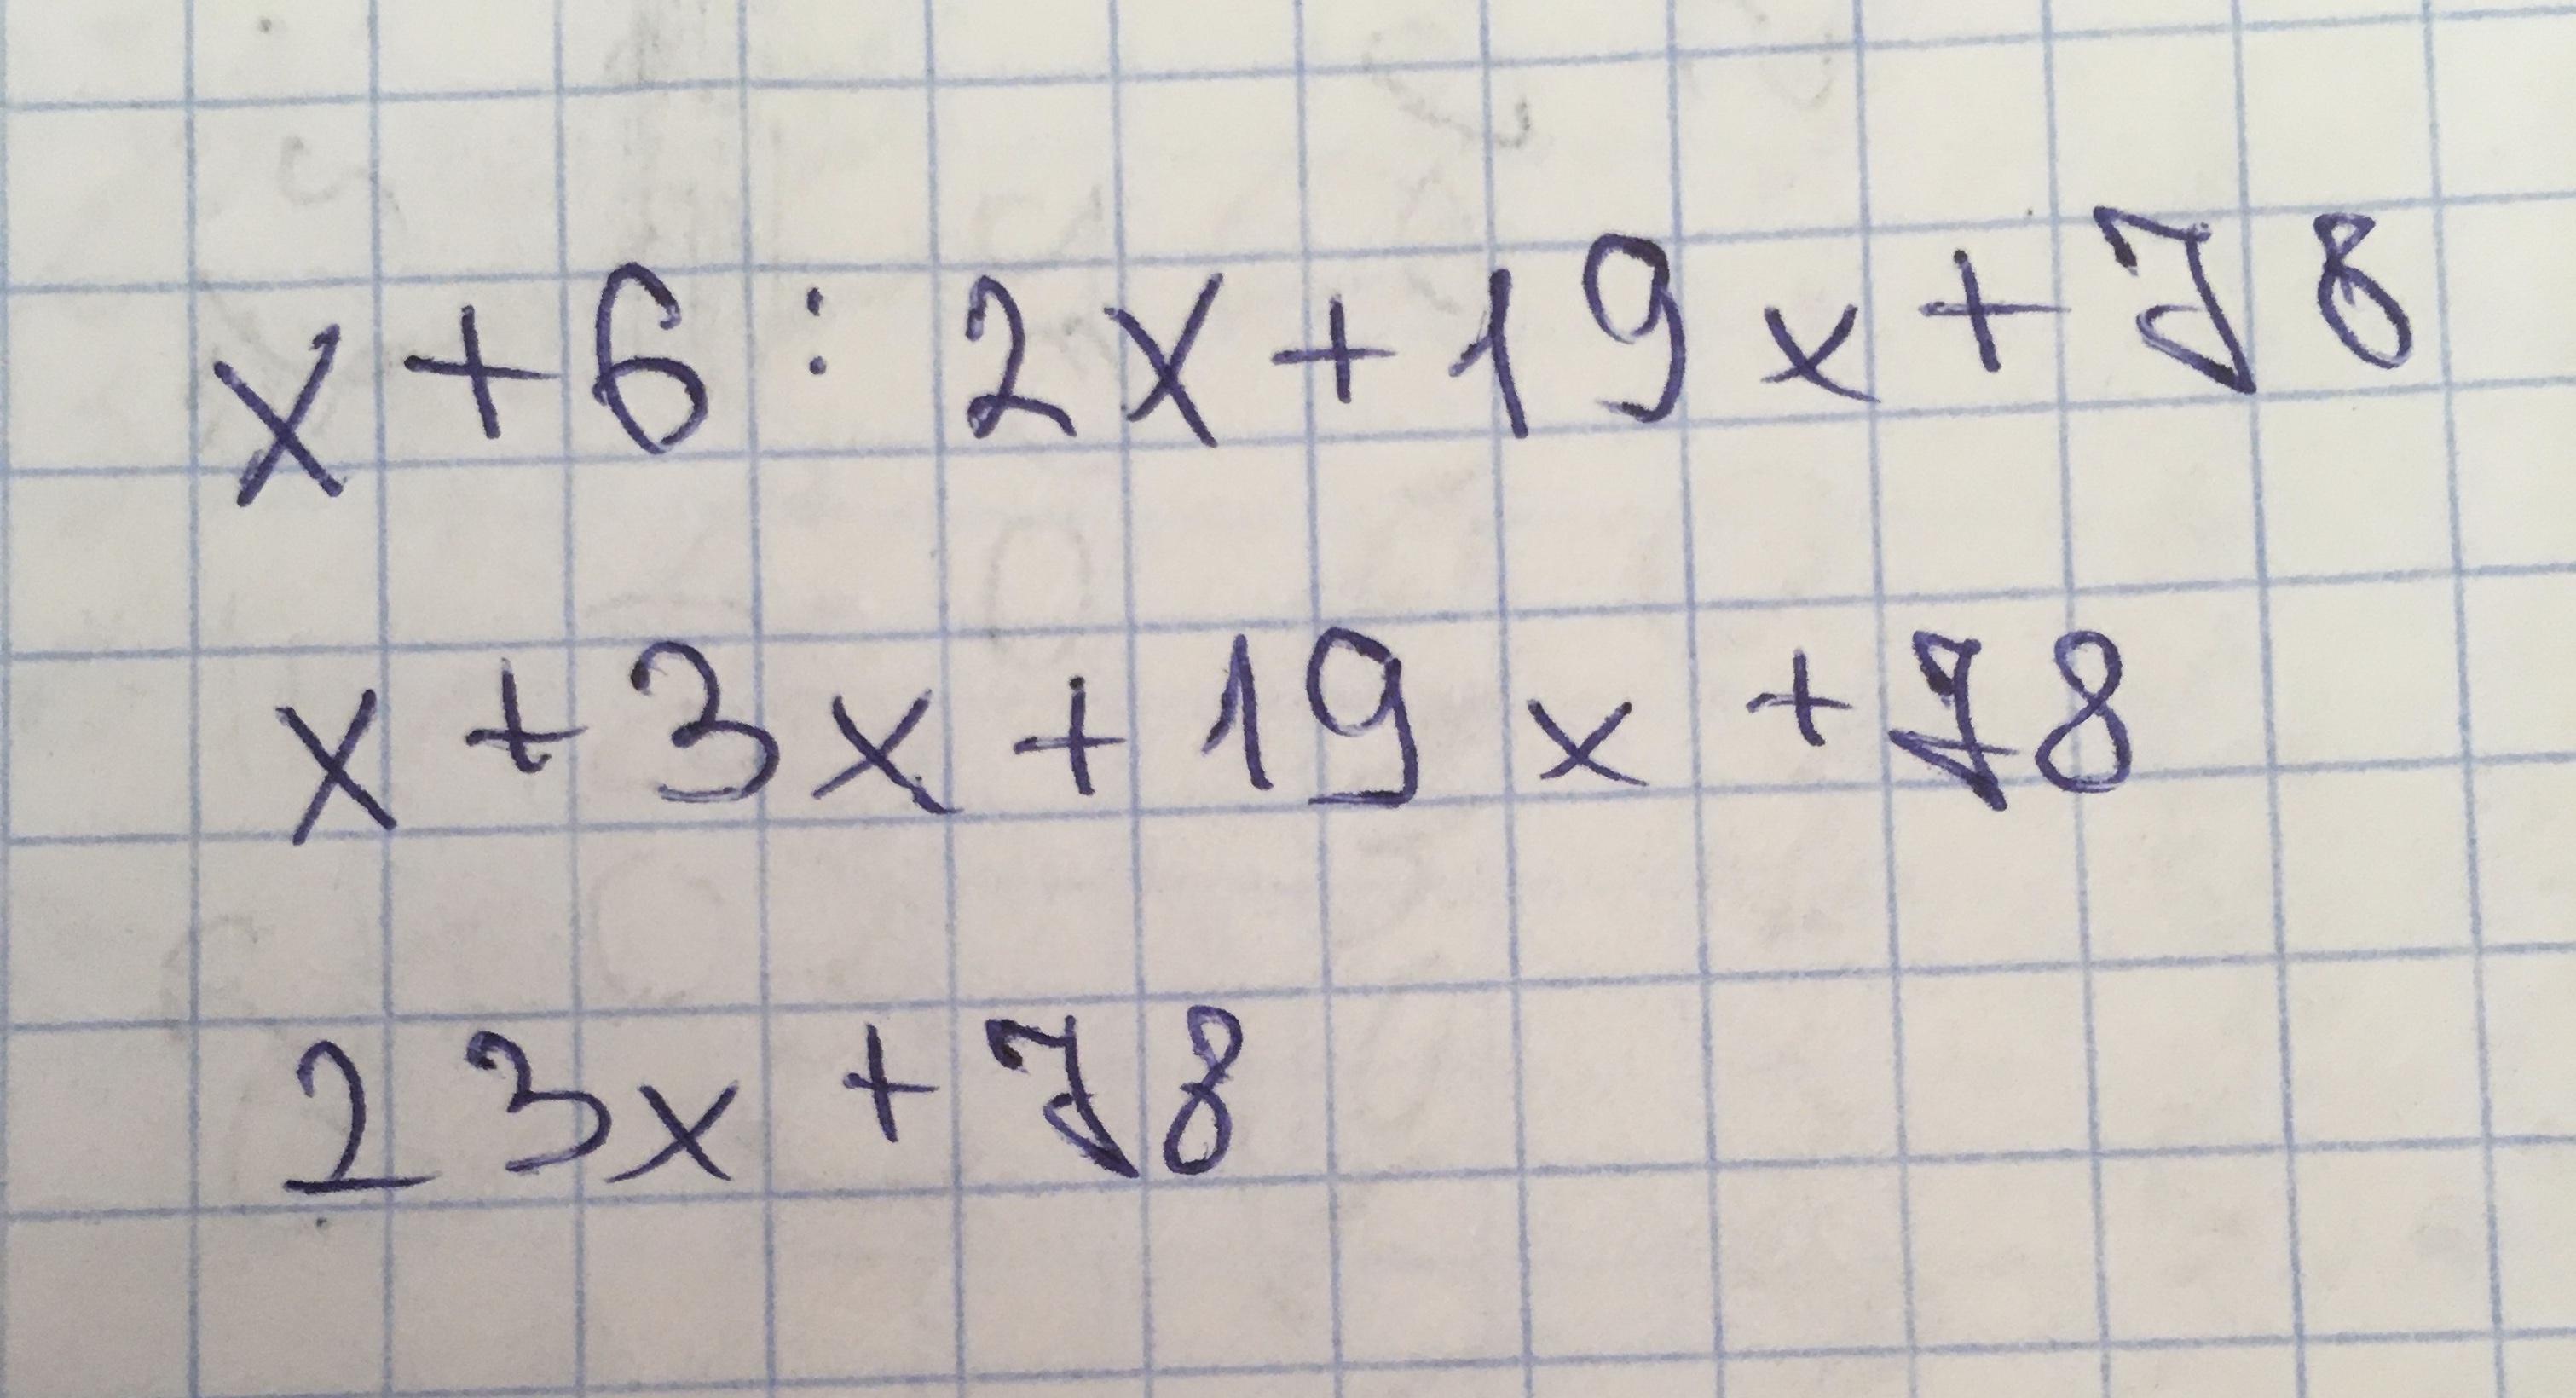 x + 6 : 2x + 19x + 78
x + 3x + 19x + 78
23x + 78